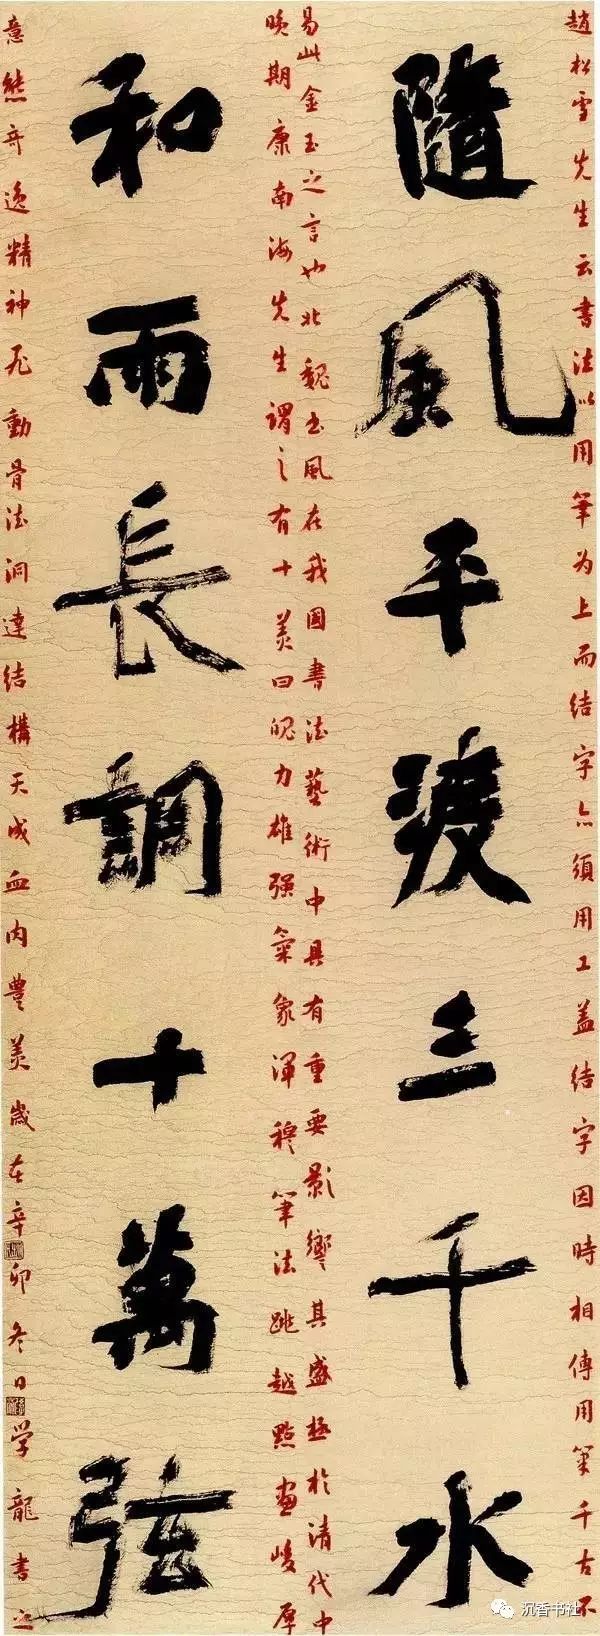 趙松雪先生云書法以用筆为上而结字亦須用工盖结字因時相傳用筆千古不
隨風平渡三千水
易此金玉之言也北魏书風在我國書法藝術中具有重要影響其盛極於清代中
晚期康南海先生謂之有十美曰魄力雄强氣象渾穆筆法跳越點畫峻厚
和雨長調十萬弦
意態奇逸精神飛動骨法洞達结構天成血肉豐美歲在辛卯冬日学龍書之
沉香书社